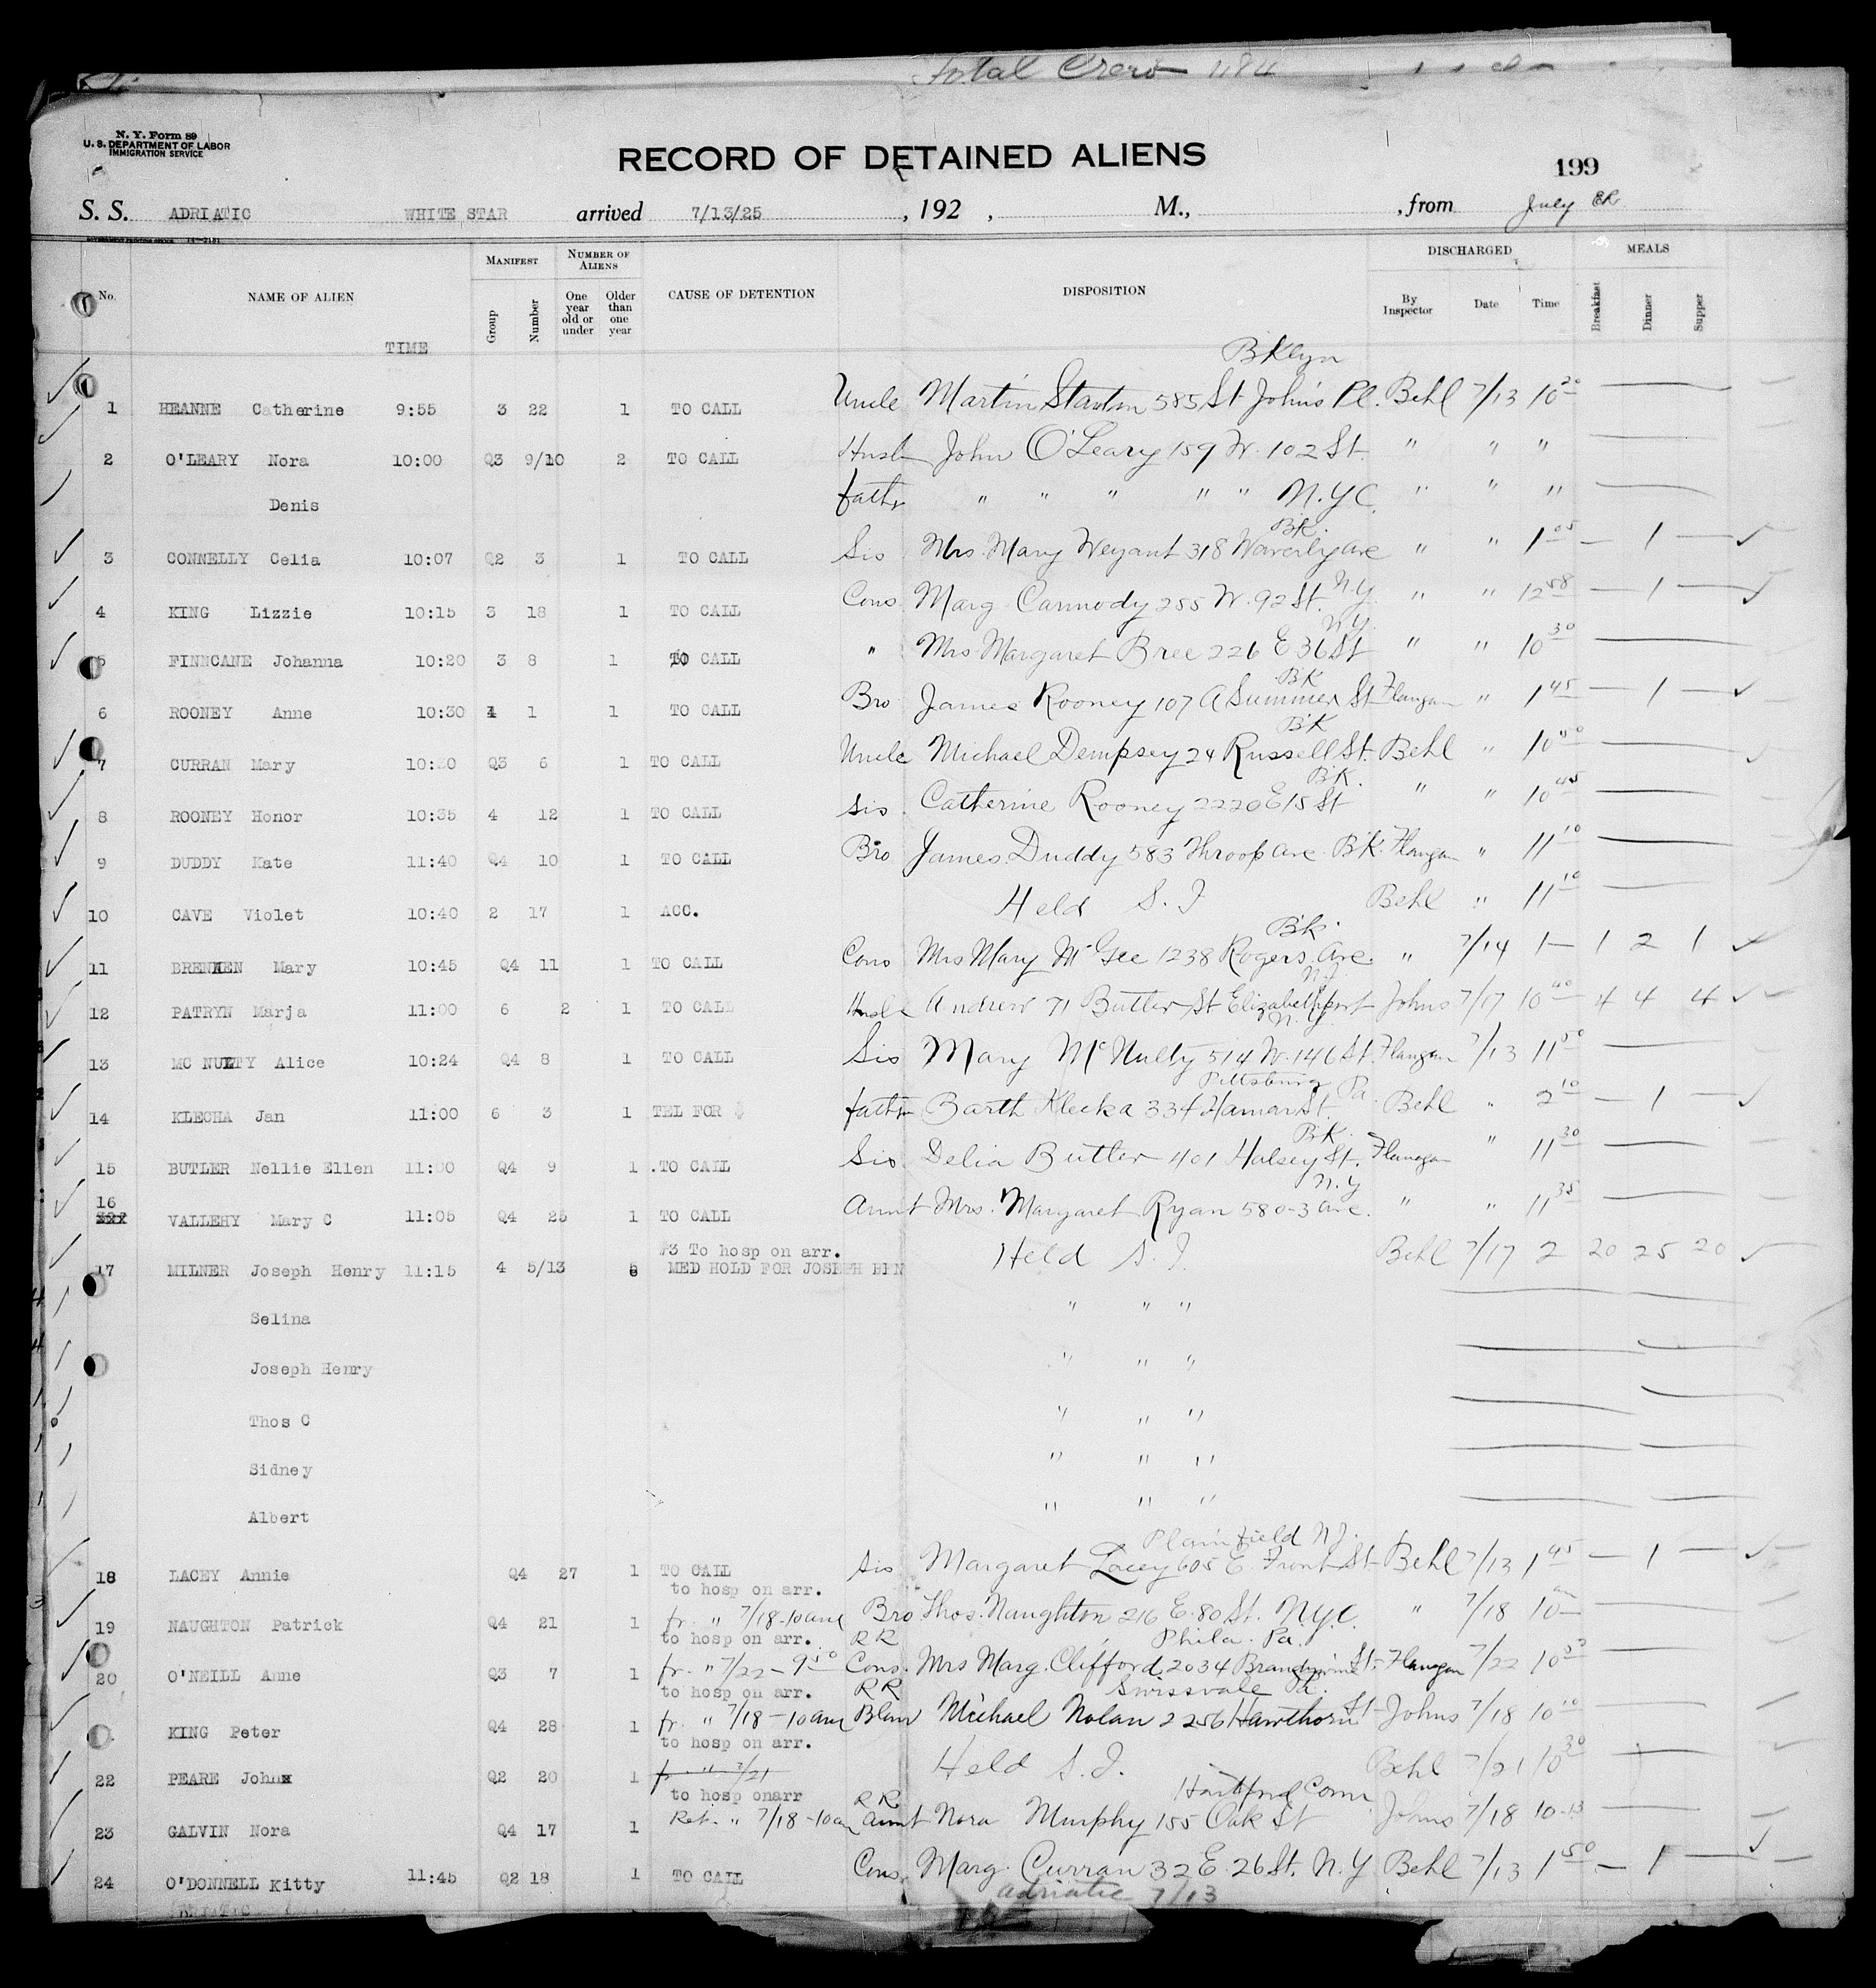 Total Crew 484
N. Y. Form 89
U. S. DEPARTMENT OF LABOR
IMMIGRATION SERVICE
RECORD OF DETAINED ALIENS
199
S. S. ADRIATIC WHITE STAR arrived 7/13/25 , 192 , M., , from July
No. NAME OF ALIEN TIME MANIFEST Group Number NUMBER OF ALIENS One year old or under Older than one year CAUSE OF DETENTION DISPOSITION DISCHARGED By Inspector Date Time MEALS Breakfast Dinner Supper
Bklyn
1 HEANNE Catherine 9:55 3 22 1 TO CALL Uncle Martin Staxton 585 St John's Pl. Behl 7/13 10 20
2 O'LEARY Nora 10:00 Q3 9/10 2 TO CALL Husb John O'Leary 159 W. 102 St. " " "
Denis fathr " " " " " N.Y.C. " " "
BK.
3 CONNELLY Celia 10:07 Q2 3 1 TO CALL Sis Mrs. Mary Weyant 318 Waverly Ave " " 1 05 — 1 —
4 KING Lizzie 10:15 3 18 1 TO CALL Cous. Marg. Carmody 255 W. 92 St. N.Y. " " 12 58 — 1 —
N.Y.
5 FINNCANE Johanna 10:20 3 8 1 TO CALL " Mrs Margaret Bree 226 E 36 St " " 10 30
BK
6 ROONEY Anne 10:30 4 1 1 TO CALL Bro James Rooney 107 A Summer St Flangan " 1 45 — 1 —
BK
7 CURRAN Mary 10:30 Q3 6 1 TO CALL Uncle Michael Dempsey 24 Russell St. Behl " 10 40
BK.
8 ROONEY Honor 10:35 4 12 1 TO CALL Sis. Catherine Rooney 2220 E 15 St " " 10 45
9 DUDDY Kate 11:40 Q4 10 1 TO CALL Bro James Duddy 583 Throop Ave. BK. Flangan " 11 10
10 CAVE Violet 10:40 2 17 1 ACC. Held S. I Behl " 11 10
BK.
11 BRENKEN Mary 10:45 Q4 11 1 TO CALL Cous Mrs Mary McGee 1238 Rogers Ave. " 7/14 1— 1 2 1
N.J.
12 PATRYN Marja 11:00 6 2 1 TO CALL Husb Andrew 71 Butler St Elizabethport Johns 7/17 10 40 4 4 4
N.Y.
13 MC NULTY Alice 10:24 Q4 8 1 TO CALL Sis Mary McNulty 514 W. 146 St. Flangan 7/13 11 50
Pittsburg Pa.
14 KLECHA Jan 11:00 6 3 1 TEL FOR $ fathr Barth Klecka 334 Hamar St. Behl " 2 10 — 1 —
BK.
15 BUTLER Nellie Ellen 11:00 Q4 9 1 .TO CALL Sis. Delia Butler 401 Halsey St. Flanagan " 11 30
N.Y
16 VALLEHY Mary C 11:05 Q4 25 1 TO CALL Aunt Mrs. Margaret Ryan 580-3 Ave. " " 11 35
#3 To hosp on arr.
17 MILNER Joseph Henry 11:15 4 5/13 MED HOLD FOR JOSEPH HEN Held S. I. Behl 7/17 2 20 25 20
Selina " " "
Joseph Henry " " "
Thos C " " "
Sidney " " "
Albert " " "
Plainfield N.J.
18 LACEY Annie Q4 27 1 TO CALL Sis Margaret Lacey 605 E. Front St Behl 7/13 1 45 — 1 —
to hosp on arr.
19 NAUGHTON Patrick Q4 21 1 fr. " 7/18-10am Bro Thos. Naughton 216 E. 80 St. N.Y.C. " 7/18 10
to hosp on arr. RR Phila. Pa.
20 O'NEILL Anne Q3 7 1 fr. " 7/22 - 9 50 Cons. Mrs Marg. Clifford 2034 Brandywine St. Flanagan 7/22 10
to hosp on arr. RR Swissvale Pa.
KING Peter Q4 28 1 fr. " 7/18-10am Michael Nolan 2256 Hawthorn St Johns 7/18 10 10
to hosp on arr.
22 PEARE John Q2 20 1 fr. " 7/21 Held S. I. Behl 7/21 10 30
to hosp onarr RR Hartford Conn
23 GALVIN Nora Q4 17 1 Ret. " 7/18-10am Aunt Nora Murphy 155 Oak St Johns 7/18 10-13
24 O'DONNELL Kitty 11:45 Q2 18 1 TO CALL Cons. Marg. Curran 32 E. 26 St. N.Y Behl 7/13 1 50 — 1 —
Adriatic 7/13